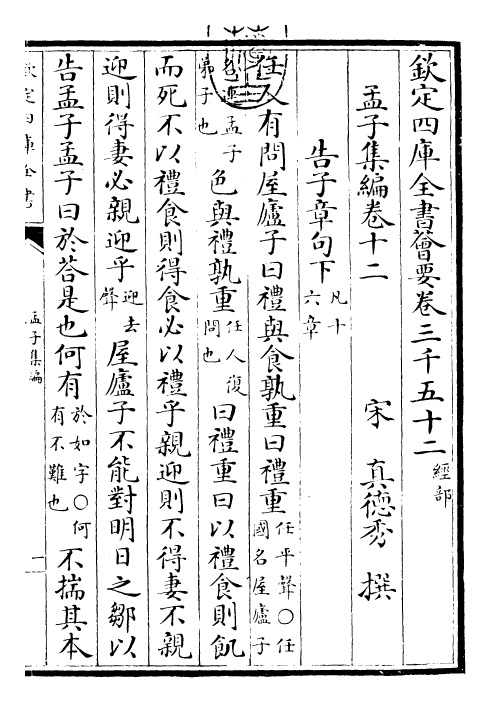 欽定四庫全書薈要卷三千五十二 經部
孟子集編卷十二 宋 真德秀 撰
告子章句下 凡十六章
任人有問屋廬子曰禮與食孰重曰禮重 任平聲○任國名屋廬子
名連孟子弟子也 色與禮孰重 任人復問也 曰禮重曰以禮食則飢
而死不以禮食則得食必以禮乎親迎則不得妻不親
迎則得妻必親迎乎 迎去聲 屋廬子不能對明日之鄒以
告孟子孟子曰於荅是也何有 於如字○何有不難也 不揣其本
欽定四庫全書
孟子集編
一